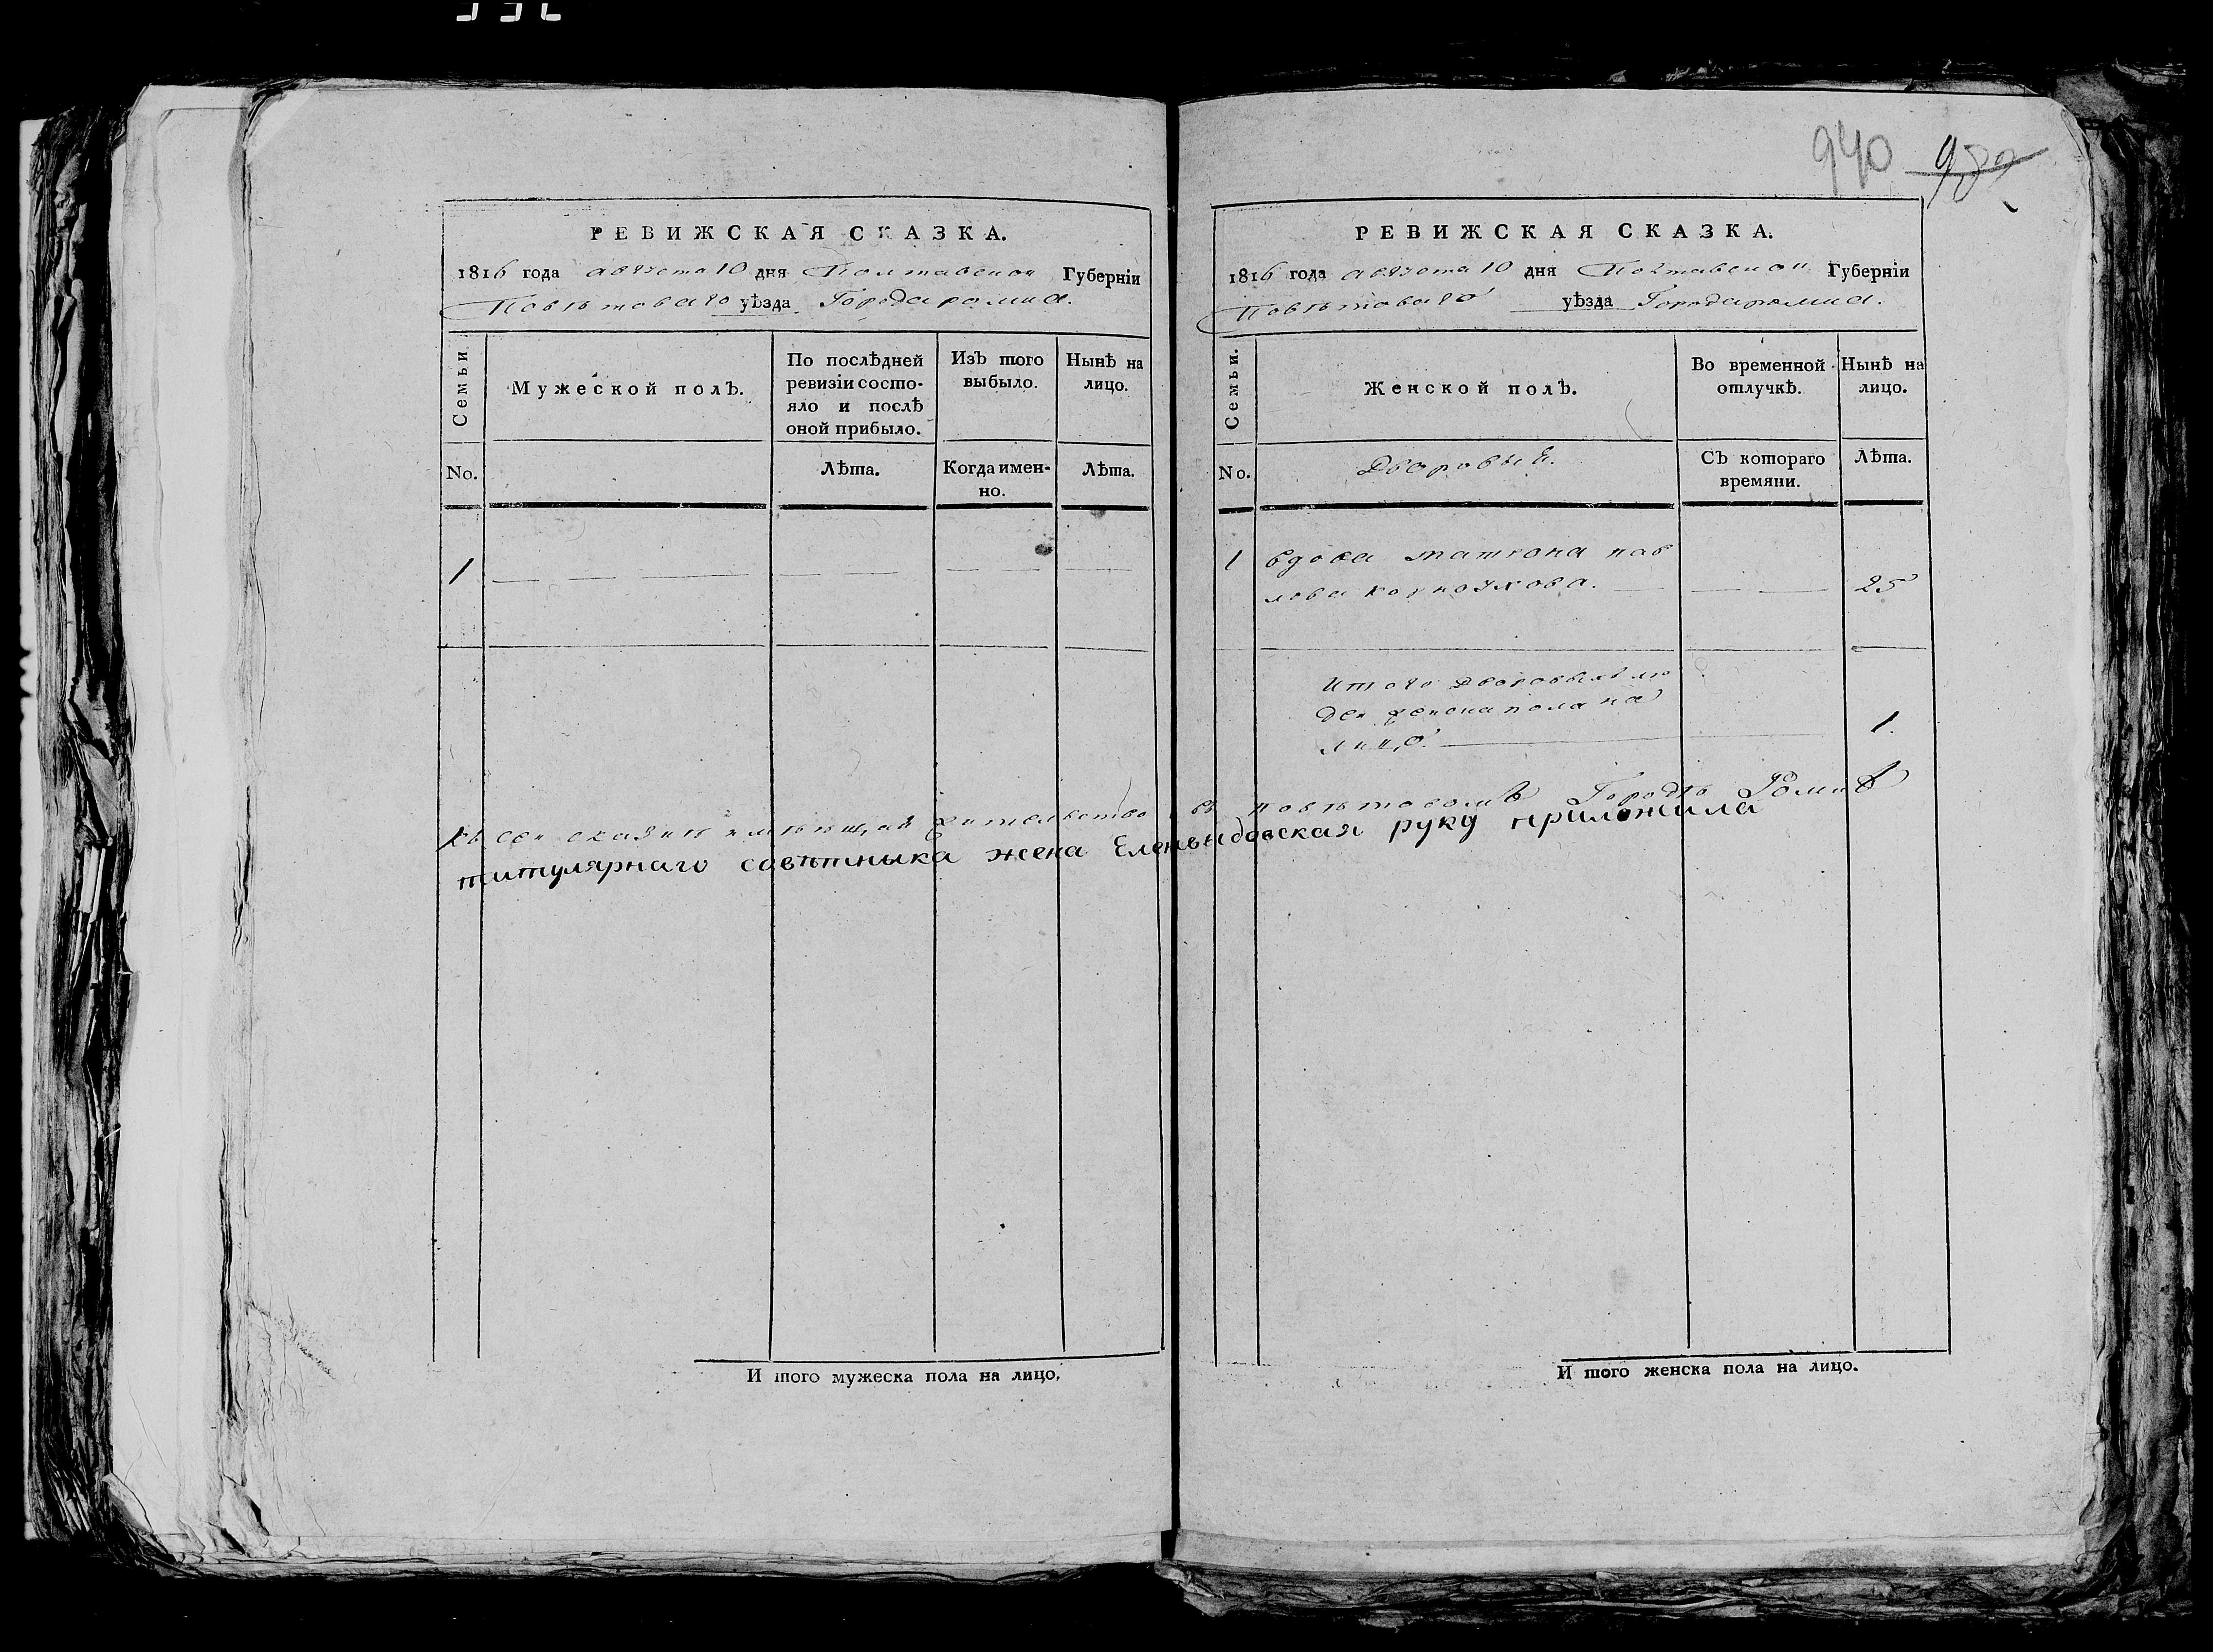 940 982
РЕВИЖСКАЯ СКАЗКА.
1816 года августа 10 дня Полтавской Губерніи
Повѣтоваго уѣзда Города ромна.
Семьи
Мужеской полъ.
По послѣдней ревизіи состо-
яло и послѣ
оной прибыло.
Изъ того
выбыло.
Нынѣ на
лицо.
No.
Лѣта.
Когда имен-
но.
Лѣта.
1
И того мужеска пола на лицо,
РЕВИЖСКАЯ СКАЗКА.
1816 года августа 10 дня Полтавской Губерніи
Повѣтоваго уѣзда Города ромна.
Семьи.
Женской полъ.
Во временной
отлучкѣ.
Нынѣ на
лицо.
No.
Дворовые.
Съ котораго
времяни.
Лѣта.
1 вдова матрона пав
лова 25
Итого дворовыхъ лю
дей женска пола на
лицо. 1.
Къ сей сказки имѣющая жителство въ повѣтовомъ Городѣ Ромнѣ
титулярнаго совѣтныка жена руку приложила
И того женска пола на лицо.